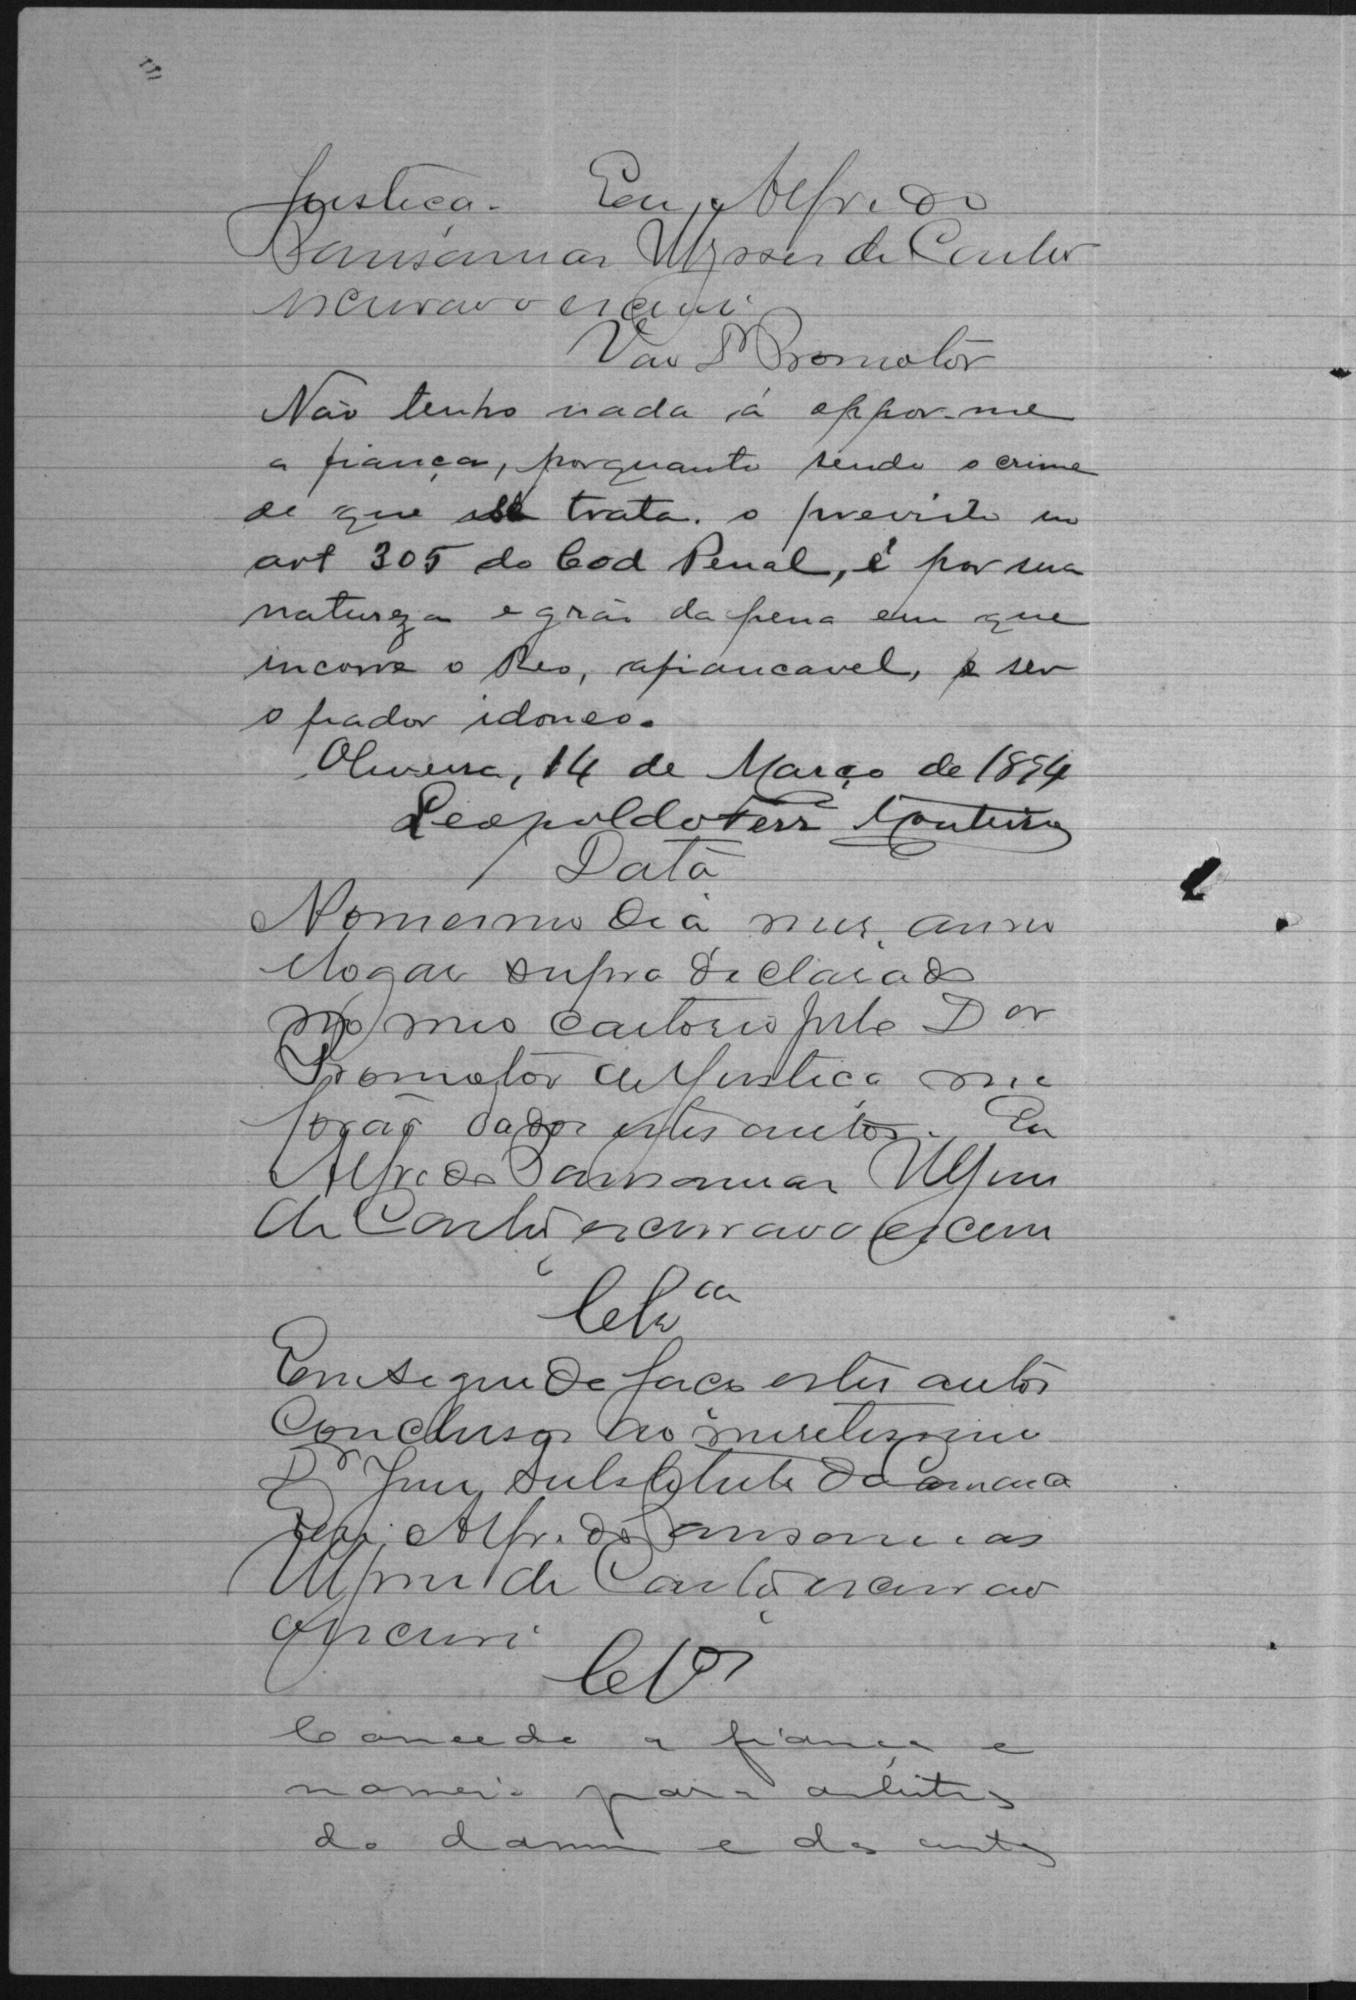 Justiça. Eu, Alfredo
Pansamuas Ulysses de Castro
escrivao o escrivi
Vao Dr Promotôr
Não tenho nada á oppor-me
a fiança, porquanto sendo o crime
de que se trata. o previsto no
art 305 do Cod Penal, é por sua
natureza e gráo da pena em que
incorre o Reo, afiancavel, e ser
o fiador idoneo.
Oliveira, 14 de Março de 1894
Leopoldo Ferr Monteiro
Data
No mesmo dia mes, anno
e logar supra declarado
no meo cartorio pelo Dor
Promotôr de Justiça me
forão dados estes autos. Eu
Alfredo Pansamuas Ulysses
de Castro escrivao o escrevi
Clsa
Em seguida faço estes autos
Conclusos ao meretissimo
Dr Juiz substituto da Comarca
Eu, Alfredo Pansamuas
Ulysses de Castro escrivao
o escrivi
Clos
Concedo a fiança e
nomeio para arbitros
do damno e das custas